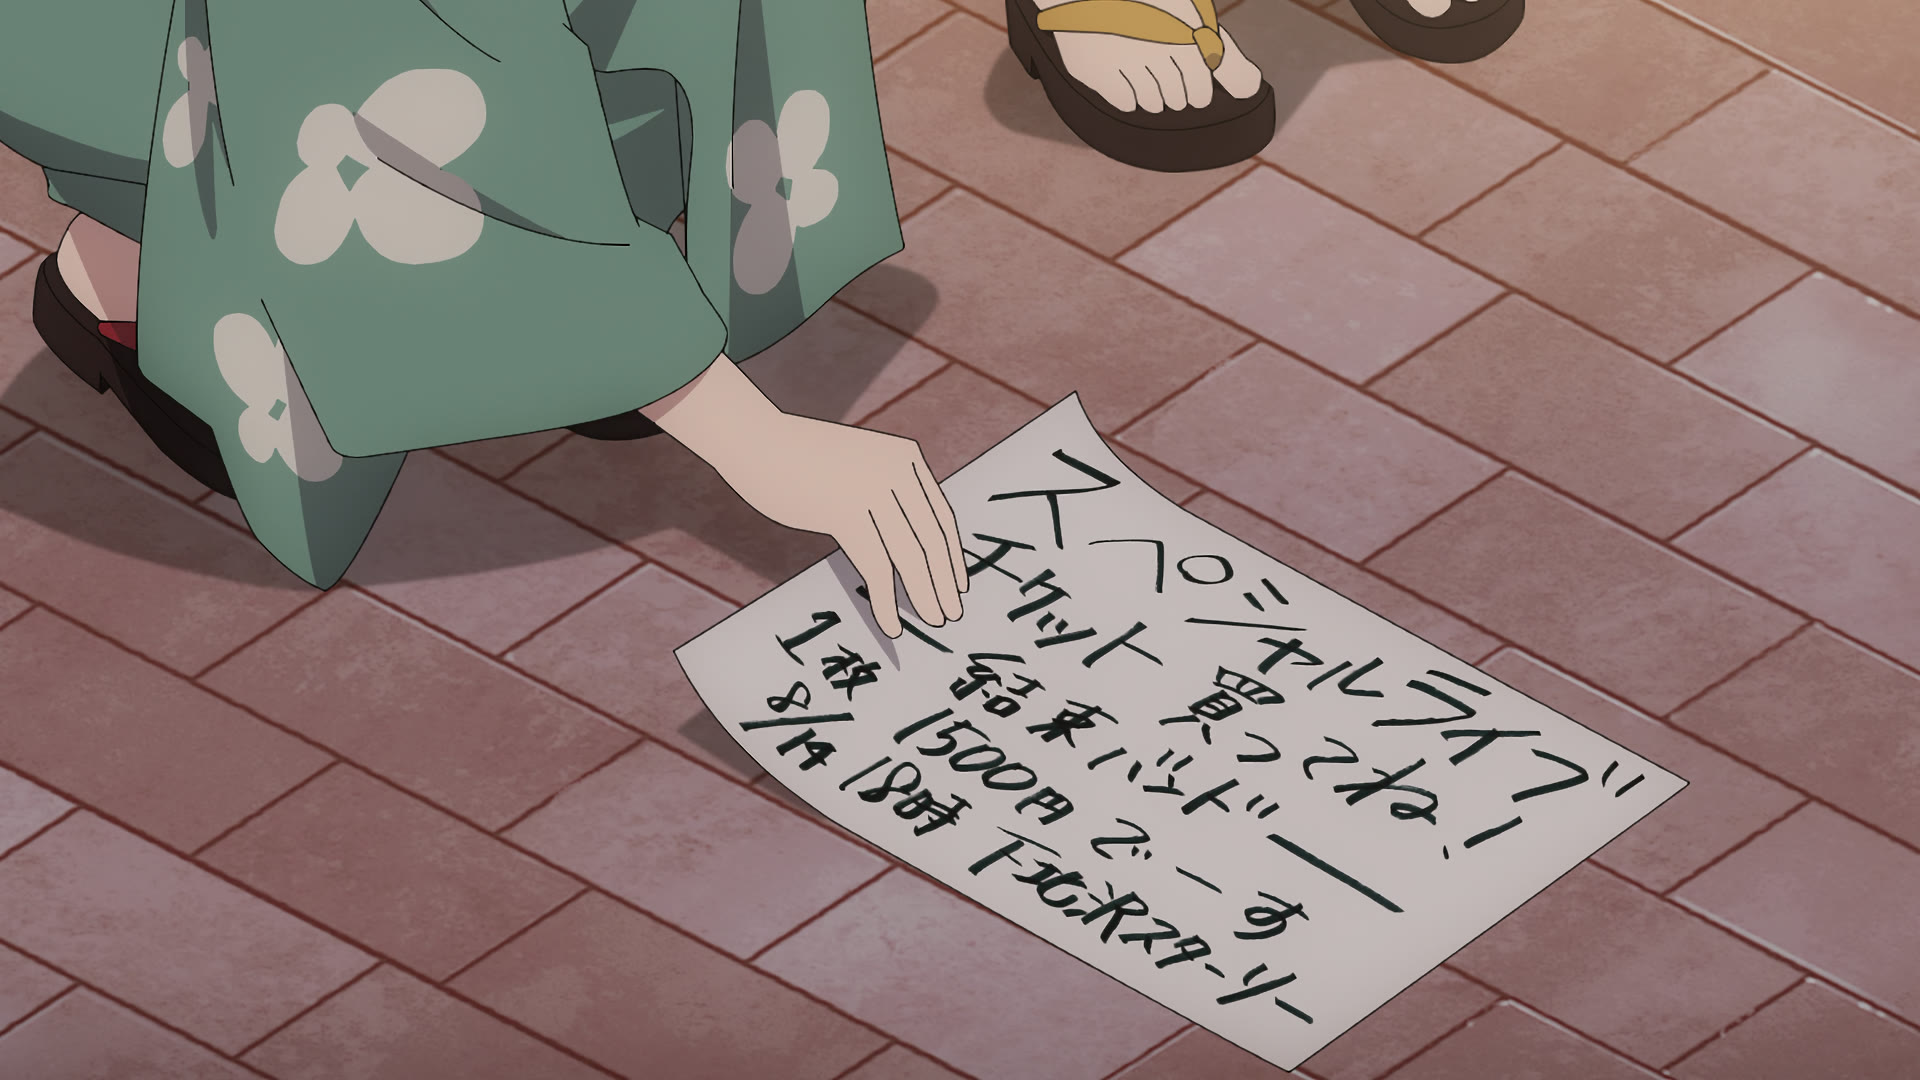 スペシャルライブ
チケット 買ってね!
ー 結束バンド ー
1枚 1500円でーす
8/14 18時 下北沢スターリー